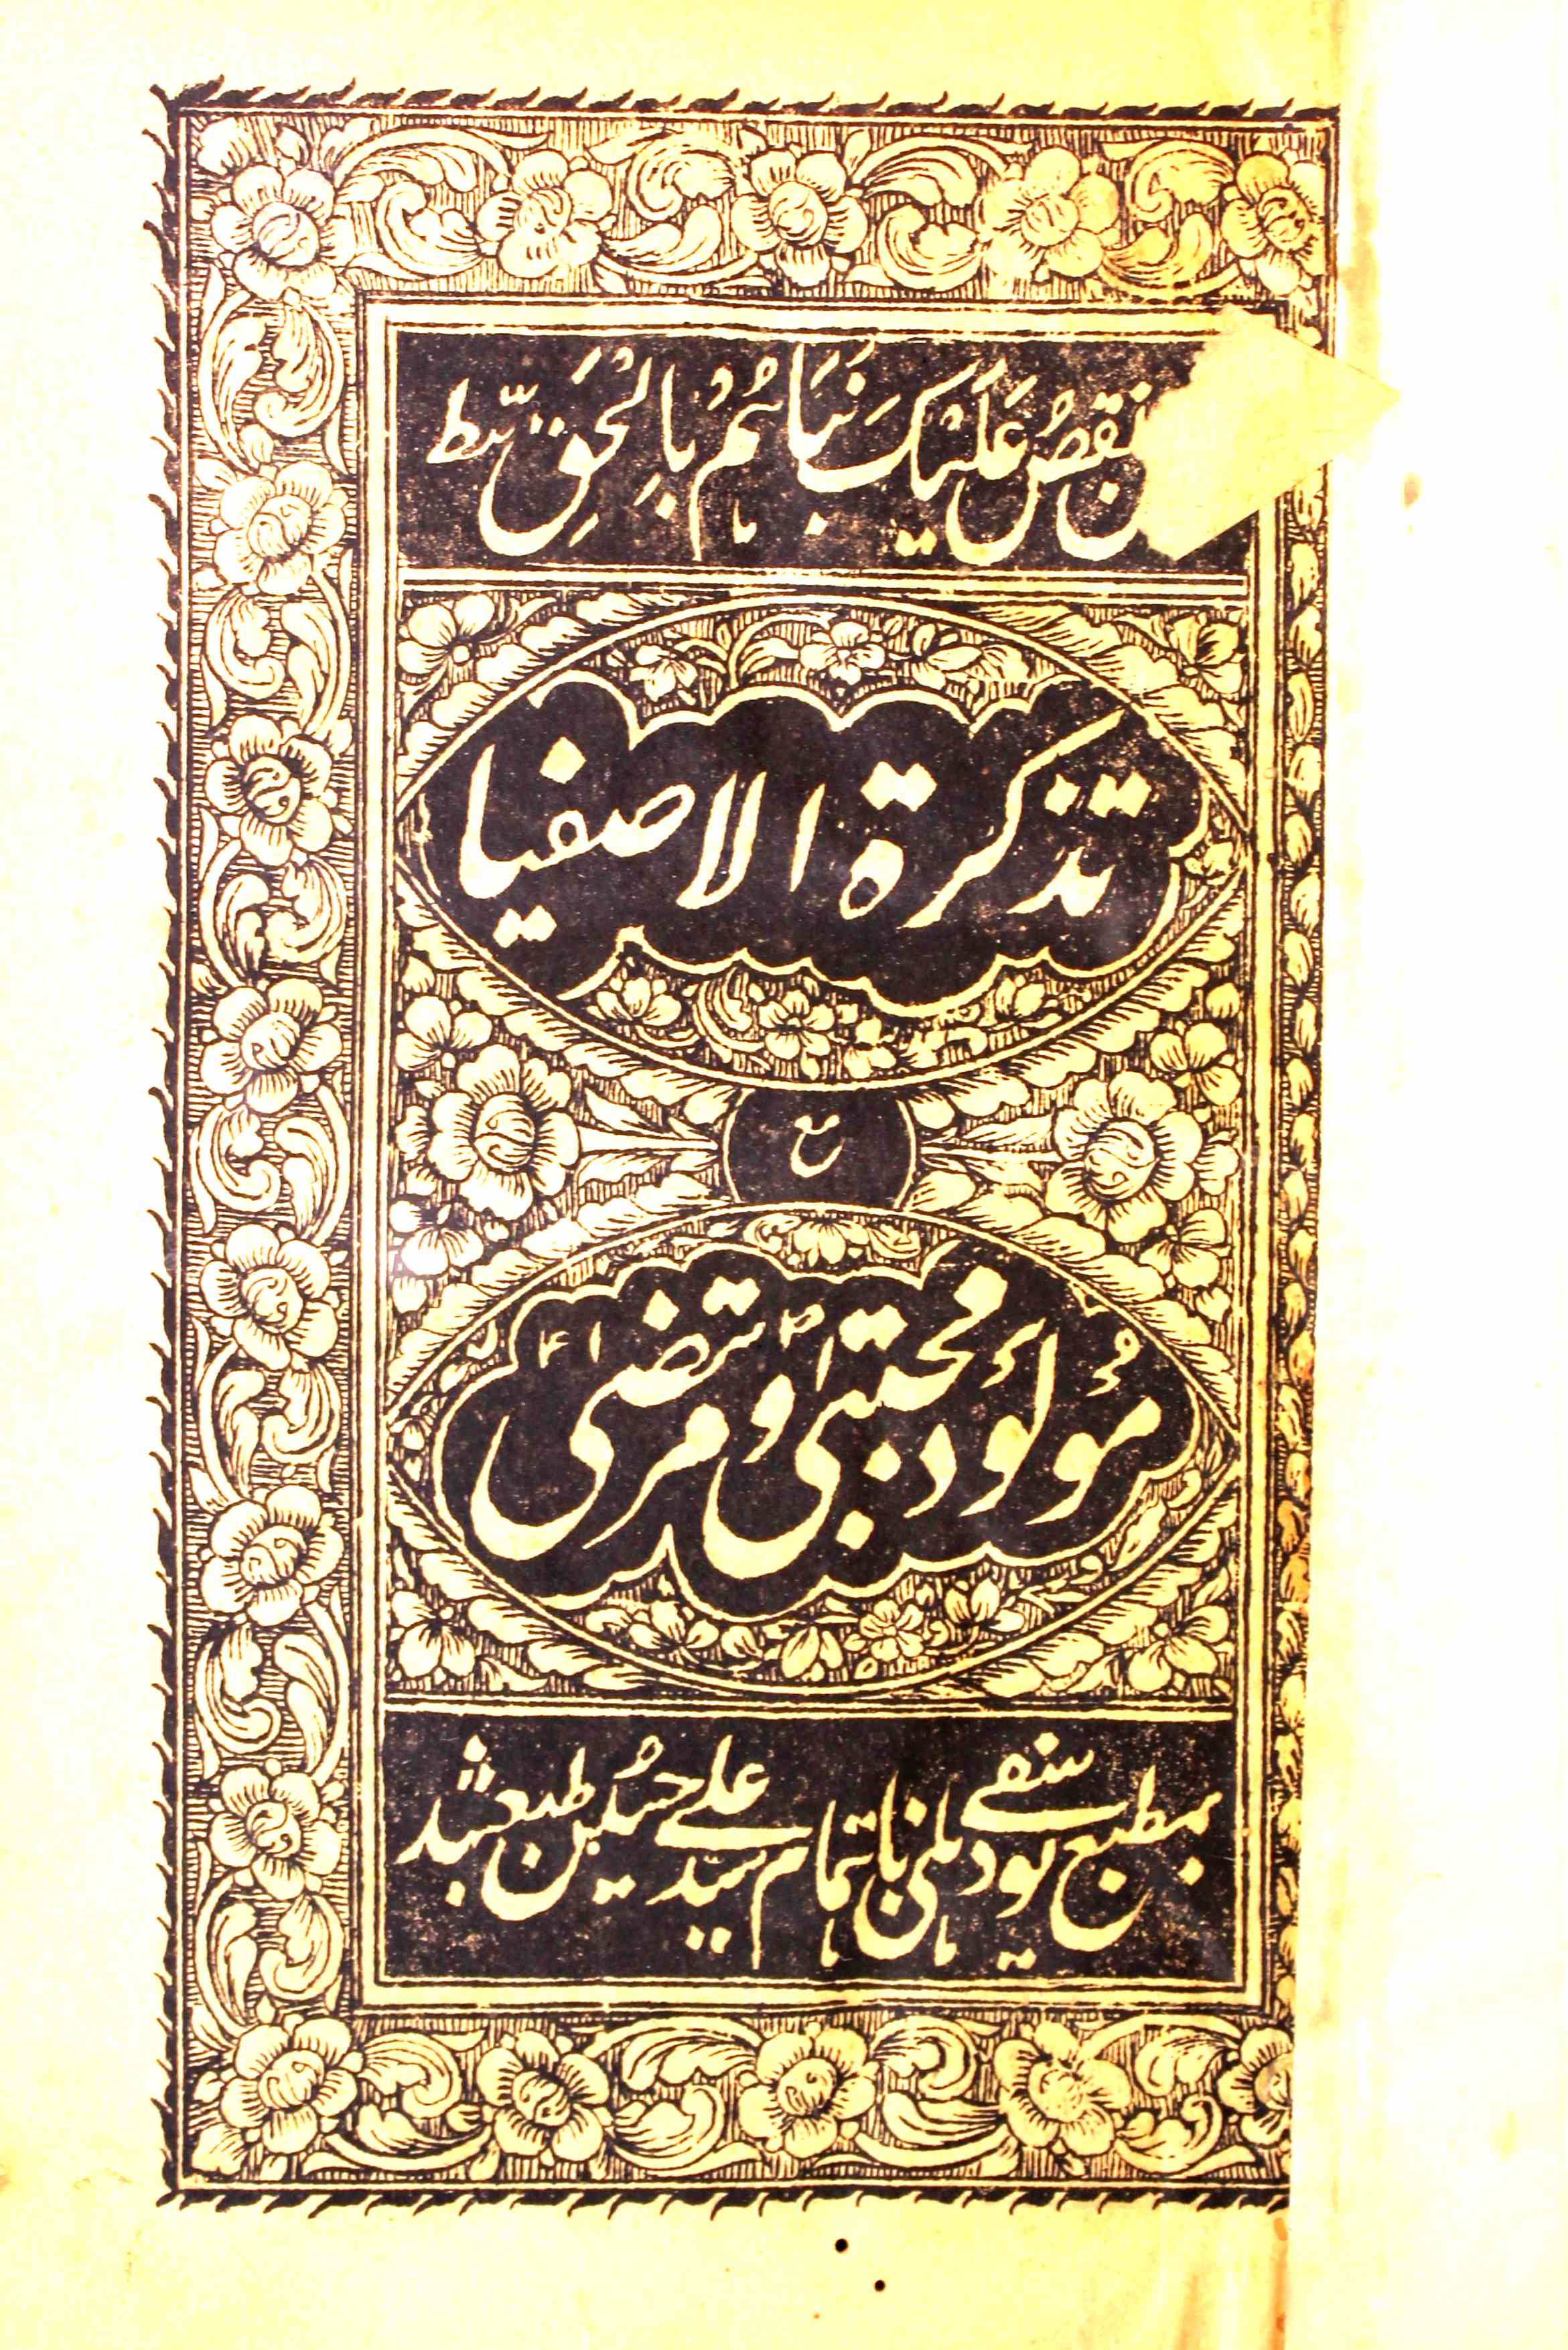 نقص علیک نَبَاَہُمْ بِالْحَقِّ ط
تذکرۃ الاصفیا
مع
مولود مجتبیٰ و مرتضیٰ
بمطبع یوسفی دہلی باہتمام سید علی حسین طبع شد